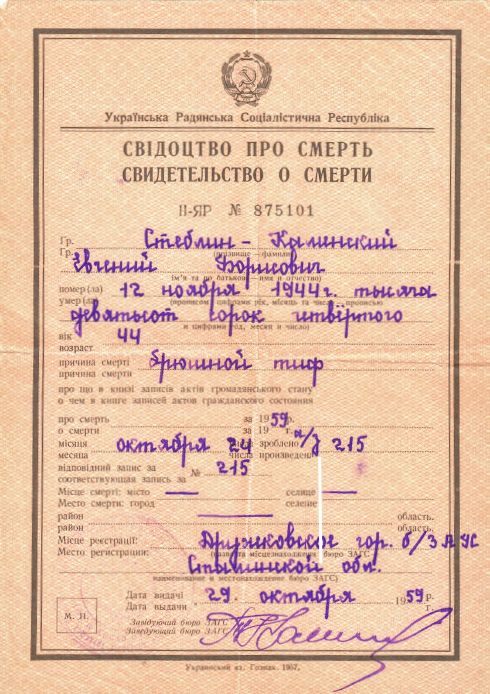 Українська Радянська Соціалістична Республіка
СВІДОЦТВО ПРО СМЕРТЬ
СВИДЕТЕЛЬСТВО О СМЕРТИ
II-ЯР № 875101
Гр. Стеблин-Каминский
(прізвище — фамилия)
Гр. Евгений Борисович
(ім'я та по батькові — имя и отчество)
номер(ла) 12 ноября 1944г. тысяча
умер(ла) (прописом і цифрами рік, місяць та число — прописью
девятьсот сорок четвёртого
и цифрами год, месяц и число)
вік 44
возраст
причина смерті брюшной тиф
причина смерти
про що в книзі записів актів громадянського стану
о чем в книге записей актов гражданского состояния
про смерть за 1959 р.
о смерти за 19 г.
місяця октября 24 числа зроблено а/з 215
месяца числа произведена
відповідний запис за № 215
соответствующая запись за
Місце смерті: місто — селище —
Место смерти: город селение
район — область.
район область.
Місце реєстрації: Дружковское гор. б/ЗАГС
Место регистрации: (назва та місцезнаходження бюро ЗАГС —
Сталинской обл.
наименование и местонахождение бюро ЗАГС)
Дата видачі 29. октября 1959 р.
Дата выдачи г.
М. П.
Завідуючий бюро ЗАГС
Заведующий бюро ЗАГС
Украинский кт. Гознак. 1957.